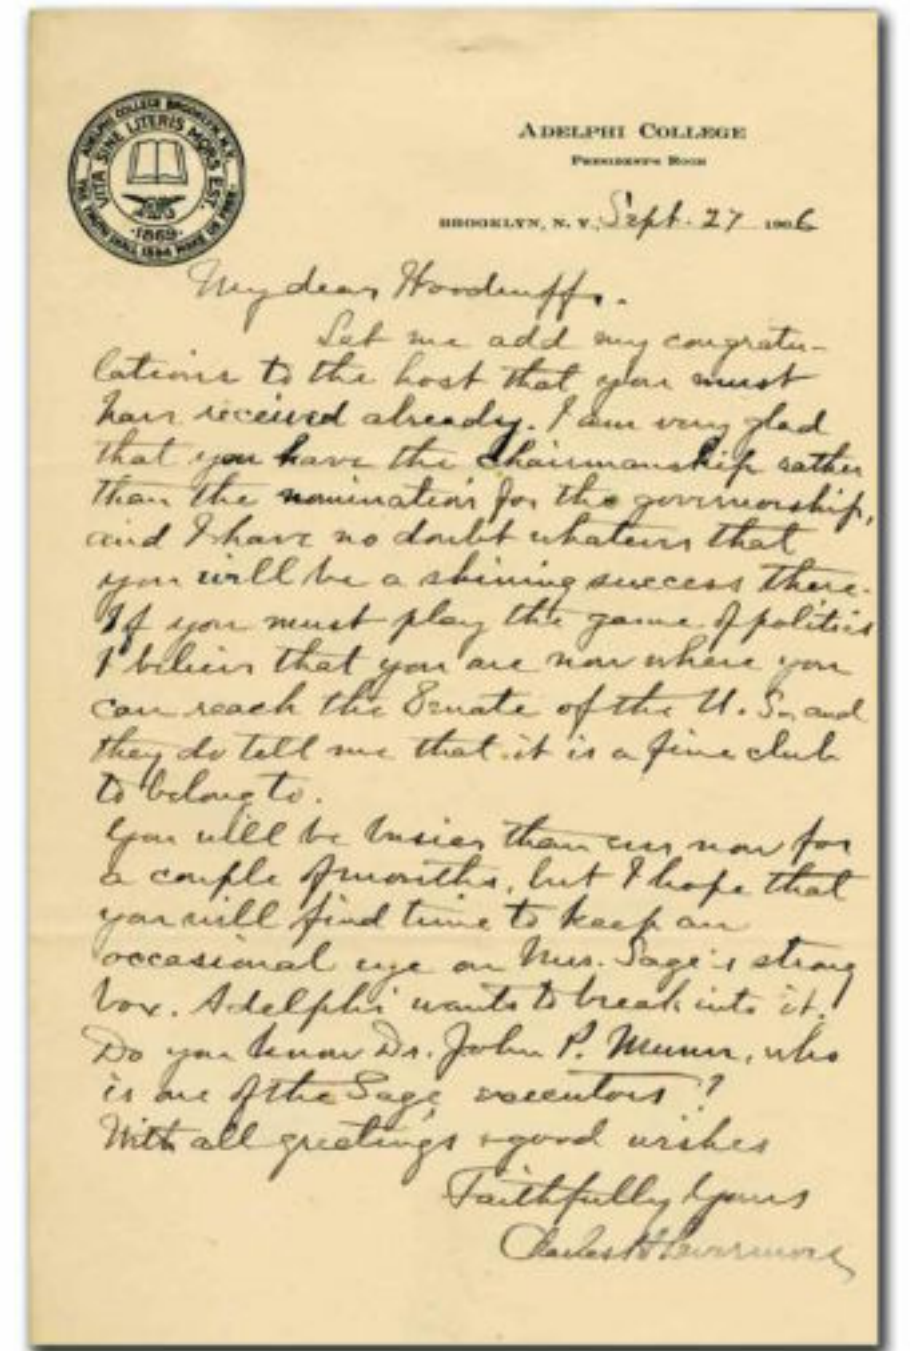 ADELPHI COLLEGE BROOKLYN, N.Y.
VITA SINE LITERIS MORS EST.
·1869·
THE TRUTH SHALL MAKE US FREE
ADELPHI COLLEGE
PRESIDENT'S ROOM
BROOKLYN, N. Y. Sept. 27 1906
My dear Woodruff.
Let me add my congratu-
lations to the host that you must
have received already. I am very glad
that you have the chairmanship rather
than the nomination for the governorship,
and I have no doubt whatever that
you will be a shining success there.
If you must play the game of politics
I believe that you are now where you
can reach the Senate of the U. S. and
they do tell me that it is a fine club
to belong to.
You will be busier than ever now for
a couple of months, but I hope that
you will find time to keep an
occasional eye on Mrs. Sage's strong
box. Adelphi wants to break into it.
Do you know Dr. John P. Munn, who
is one of the Sage executors?
With all greetings & good wishes
Faithfully Yours
Charles H Levermore